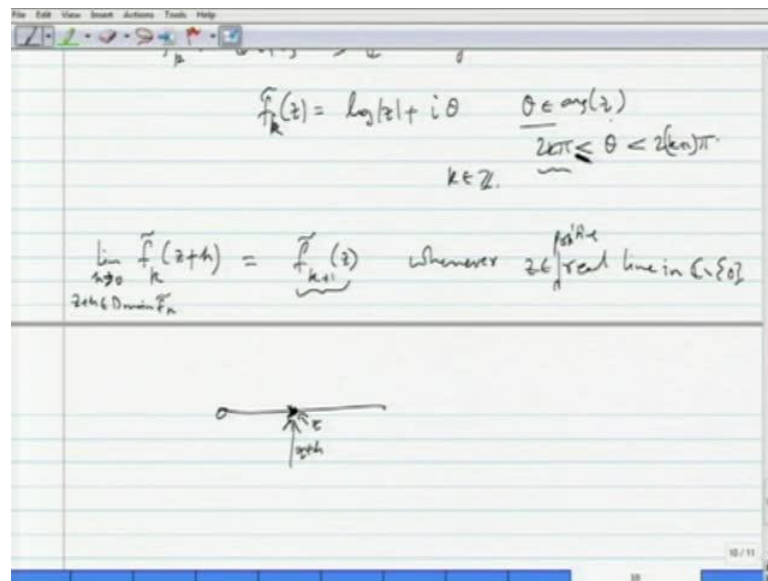 File Edit View Insert Actions Tools Help
f̃_k(z) = log|z| + i θ θ ∈ arg(z)
2kπ ≤ θ < 2(k+1)π.
k ∈ ℤ.
lim_{h→0} f̃_k(z+h) = f̃_{k+1}(z) whenever z ∈ positive real line in ℂ∖{0}
z+h ∈ Domain f̃_k
z
z+h
10 / 11
10